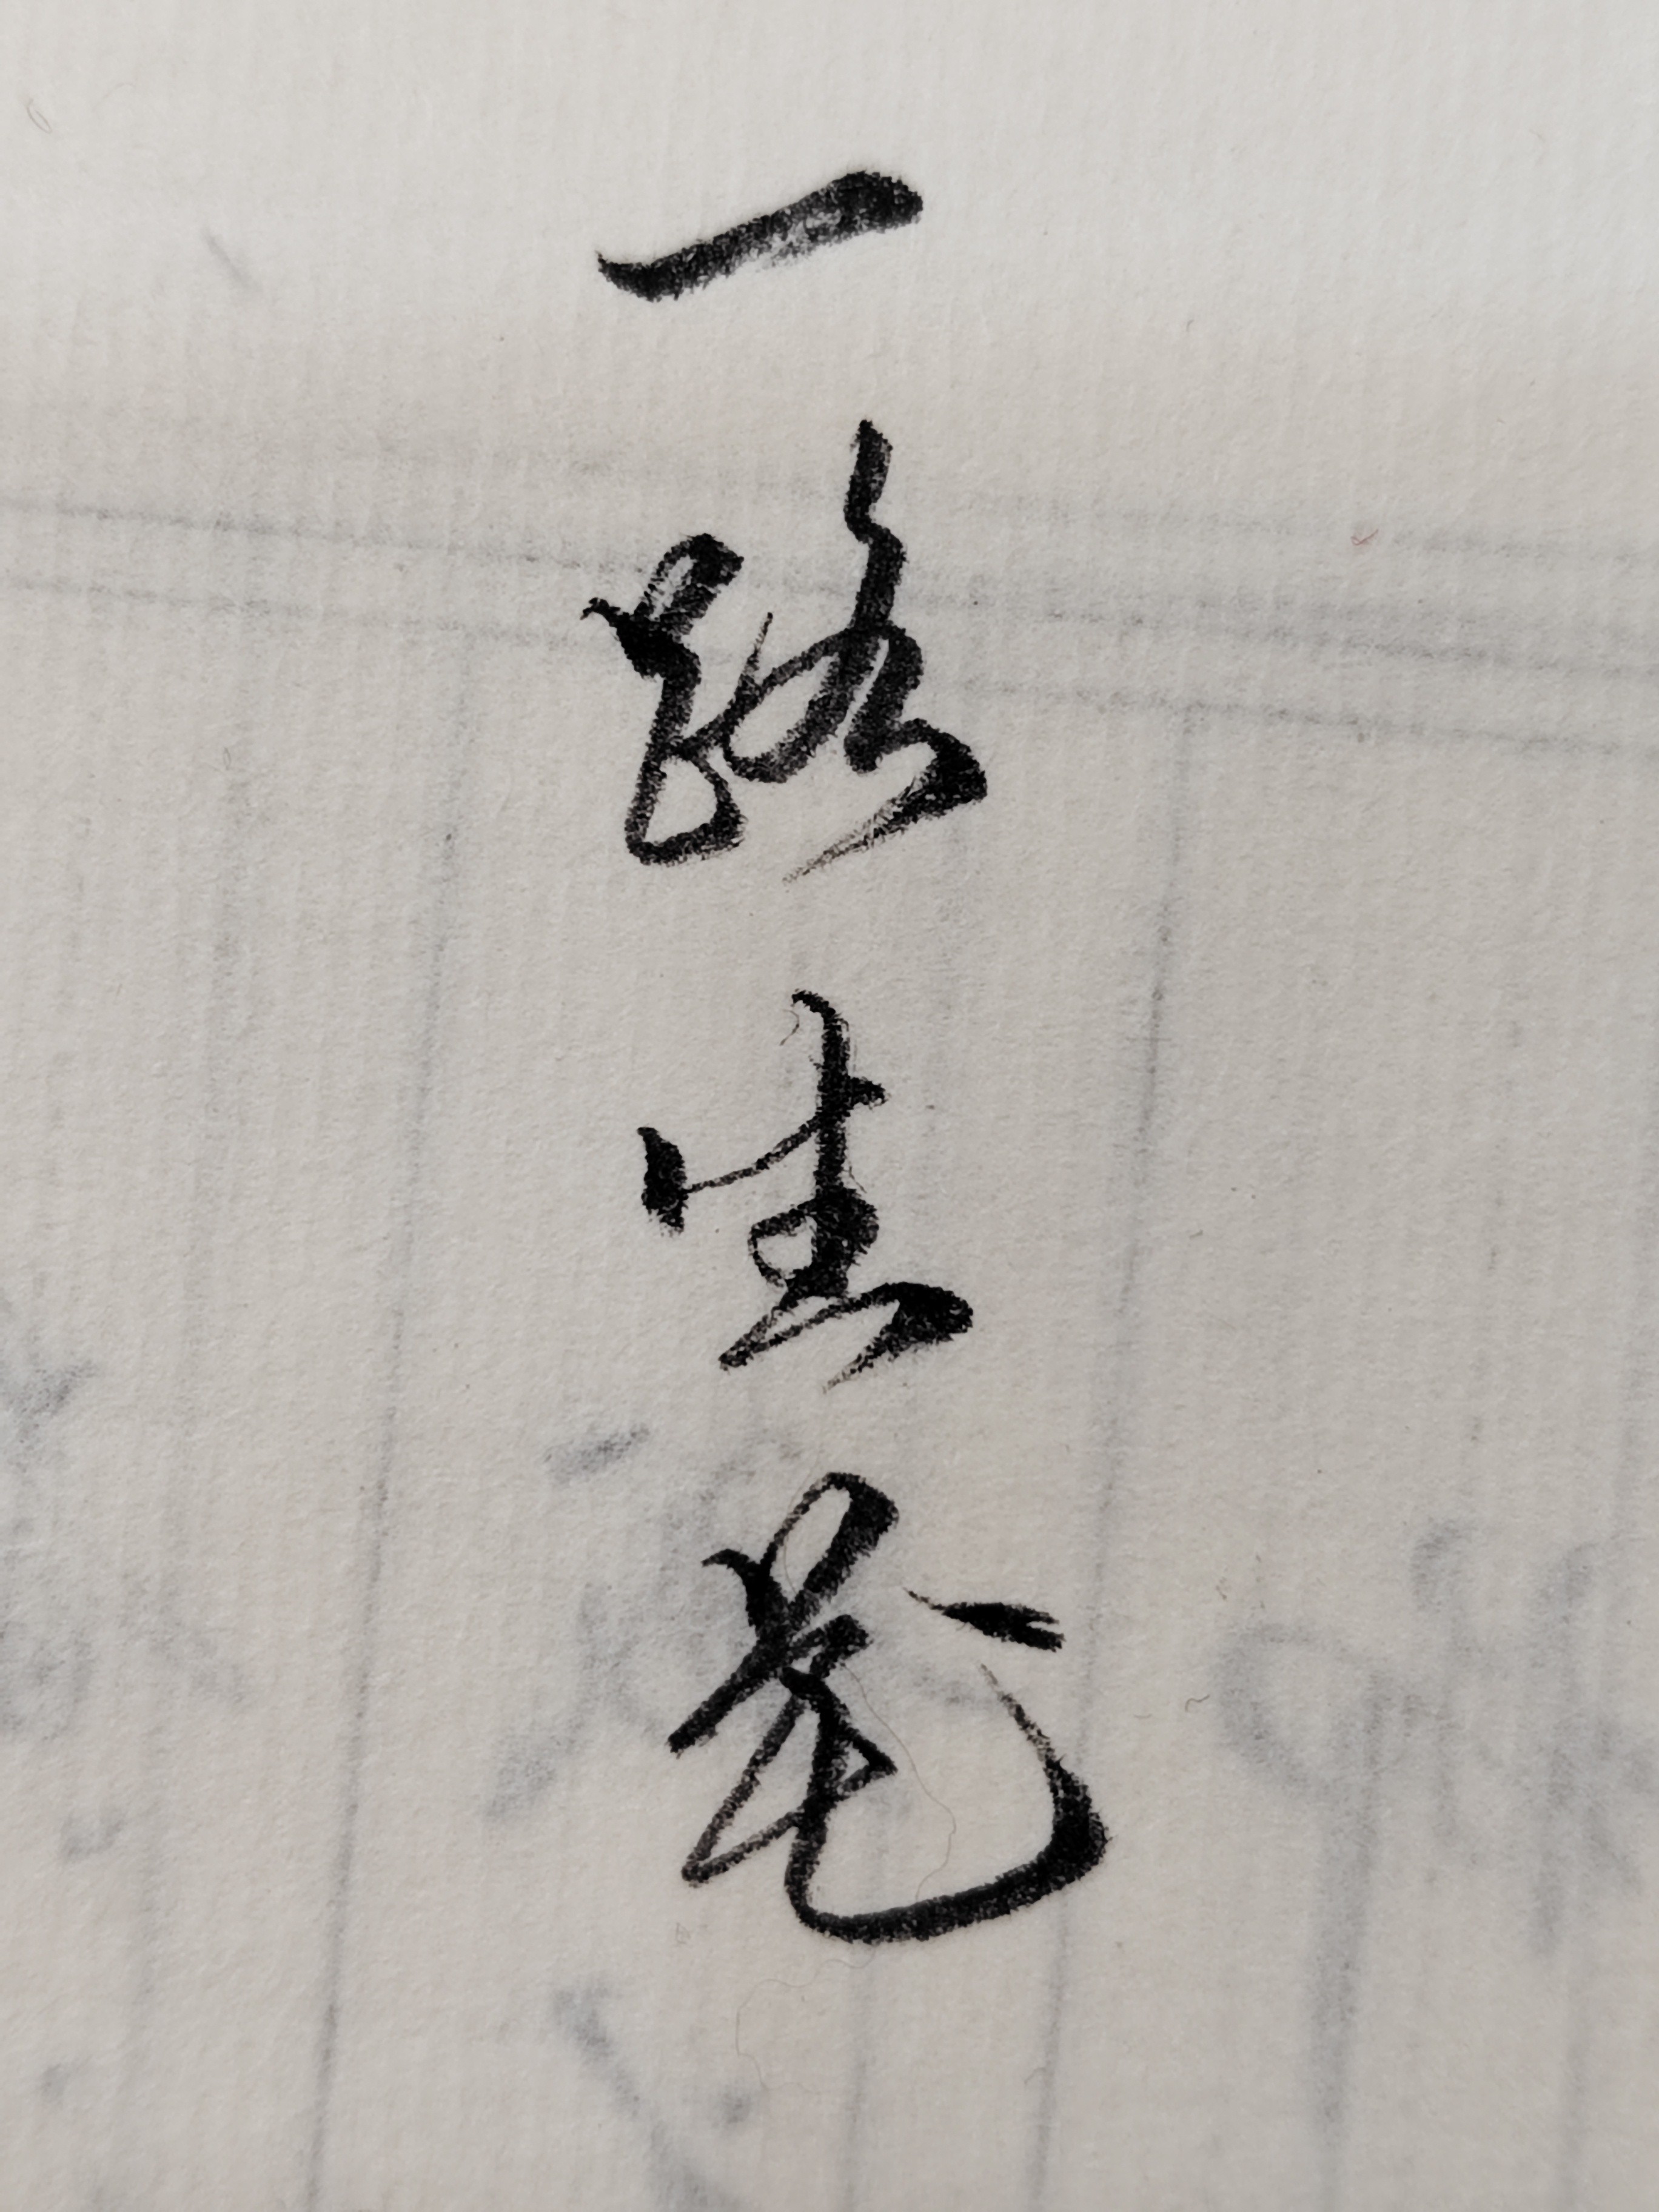 一路生花